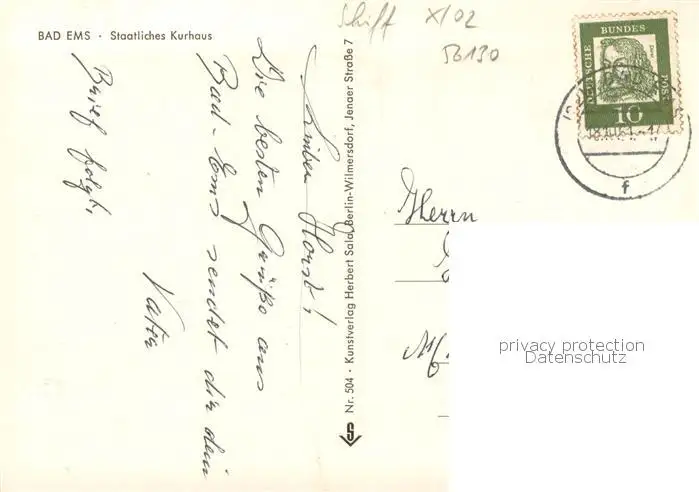 BAD EMS · Staatliches Kurhaus
Lieber Horst!
Die besten Grüße aus
Bad-Ems sendet dir dein
Vater
Brief folgt.
Nr. 504 · Kunstverlag Herbert Sala, Berlin-Wilmersdorf, Jenaer Straße 7
S
Schiff XI02
56130
DEUTSCHE BUNDES POST
Dürer
10
f
Herrn
privacy protection
Datenschutz